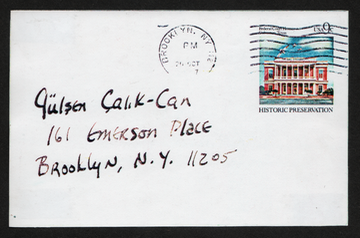 BROOKLYN, NY
PM
OCT
USA 9c
HISTORIC PRESERVATION
Gülsen Çalık-Can
161 Emerson Place
Brooklyn, N.Y. 11205